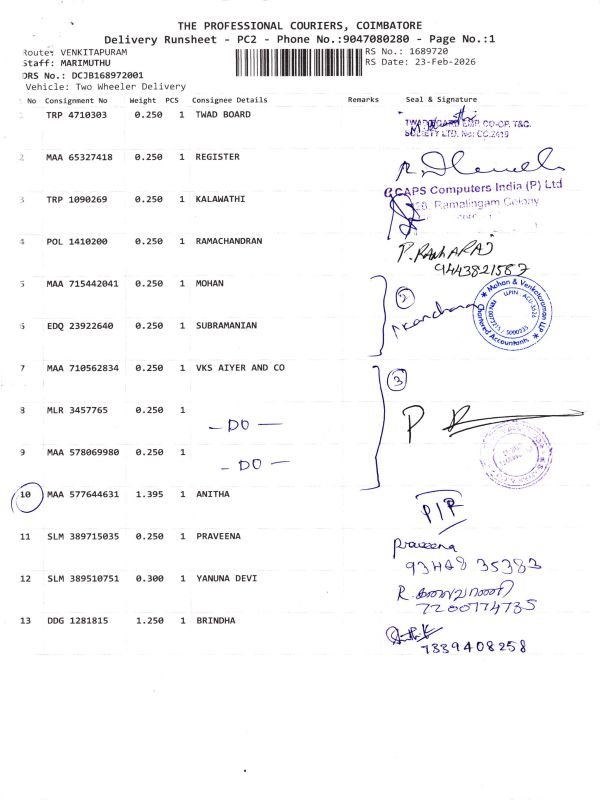 THE PROFESSIONAL COURIERS, COIMBATORE
Delivery Runsheet - PC2 - Phone No.:9047080280 - Page No.:1
Route: VENKITAPURAM
RS No.: 1689720
Staff: MARIMUTHU
RS Date: 23-Feb-2026
DRS No.: DCJB168972001
Vehicle: Two Wheeler Delivery
No Consignment No Weight PCS Consignee Details Remarks Seal & Signature
1 TRP 4710303 0.250 1 TWAD BOARD
TWAD BOARD EMP. CO-OP. T&C.
SOCIETY LTD. No: CC.2419
2 MAA 65327418 0.250 1 REGISTER
CAPS Computers India (P) Ltd
Ramalingam Colony
3 TRP 1090269 0.250 1 KALAWATHI
4 POL 1410200 0.250 1 RAMACHANDRAN
9443821587
5 MAA 715442041 0.250 1 MOHAN
2
Mohan & Venkataraman LLP
Chartered Accountants
6 EDQ 23922640 0.250 1 SUBRAMANIAN
7 MAA 710562834 0.250 1 VKS AIYER AND CO
3
8 MLR 3457765 0.250 1
- DO -
9 MAA 578069980 0.250 1
- DO -
10 MAA 577644631 1.395 1 ANITHA
P/R
11 SLM 389715035 0.250 1 PRAVEENA
Praveena
93448 35383
12 SLM 389510751 0.300 1 YANUNA DEVI
7200774735
13 DDG 1281815 1.250 1 BRINDHA
7339408258